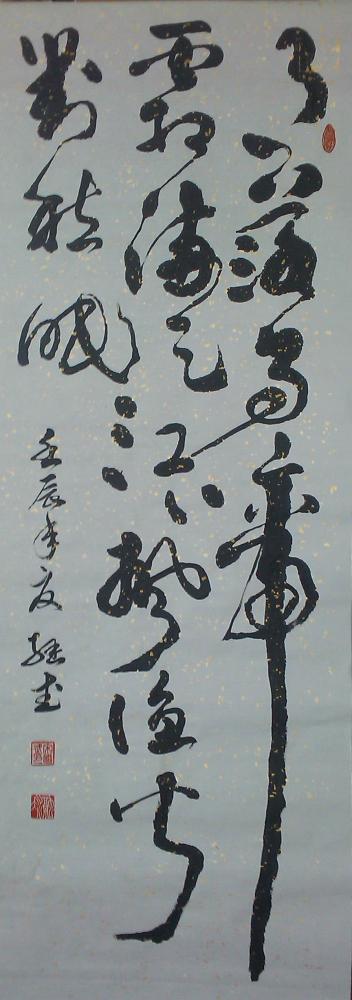 月落烏啼
霜滿天江楓漁火
對愁眠
壬辰年夏